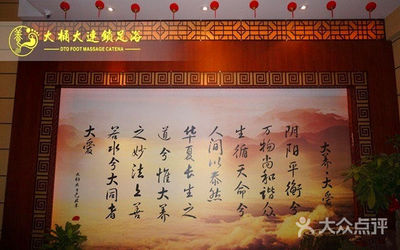 大桶大連鎖足浴
DTD FOOT MASSAGE CATENA
大养·大爱
阴阳平衡兮
万物尚和谐众
生循天命兮
人间以泰然
华夏长生之
道兮惟大养
之妙法上善
若水兮大同者
大爱
大众点评